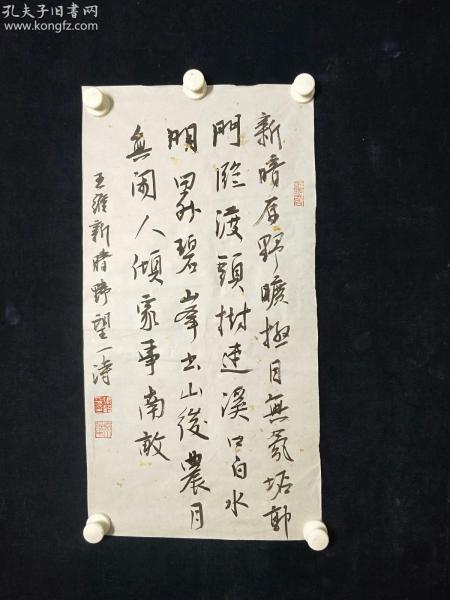 孔夫子旧书网
www.kongfz.com
新晴原野曠極目無氛垢郭
門臨渡頭樹連溪口白水
明田外碧峰出山後農月
無閑人傾家事南畝
王維新晴野望一詩